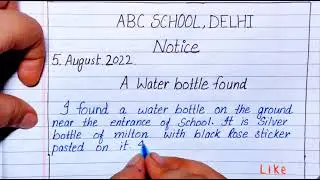 ABC SCHOOL, DELHI
Notice
5. August. 2022.
A Water bottle found
I found a water bottle on the ground
near the entrance of School. It is Silver
bottle of milton with black Rose sticker
pasted on it.
Like